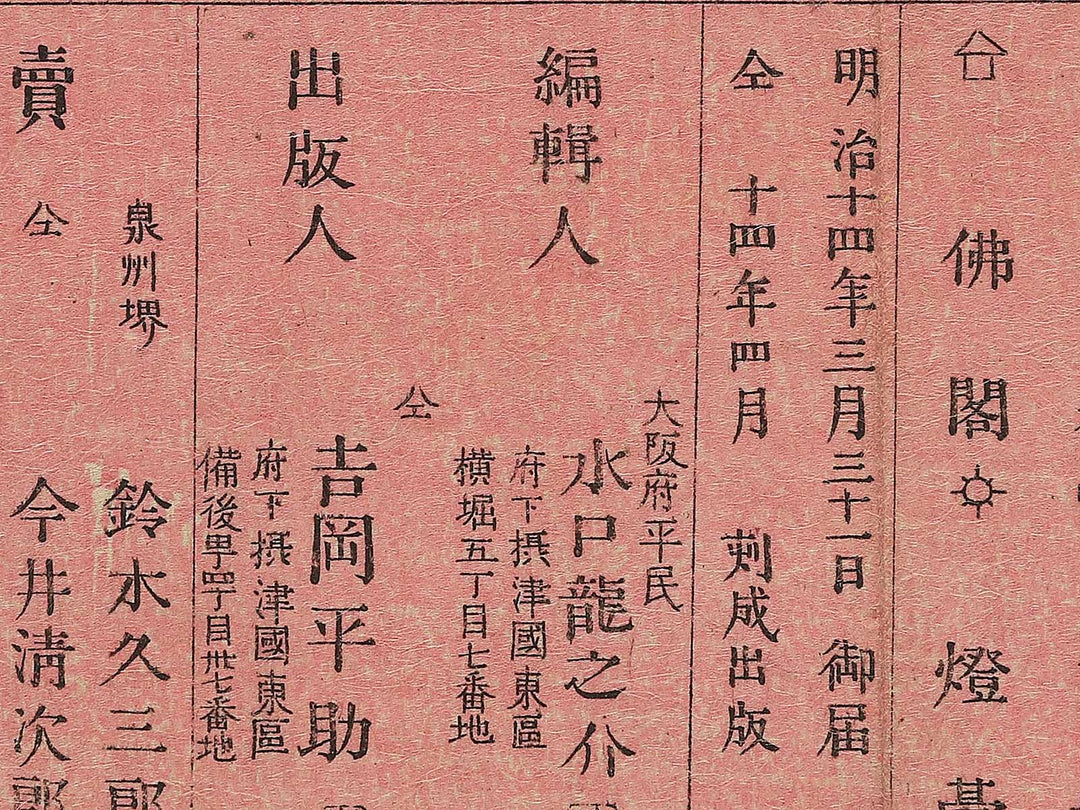 佛閣 燈
明治十四年三月三十一日 御届
仝 十四年四月 刺成出版
編輯人
大阪府平民
水口龍之介
府下摂津國東區
横堀五丁目七番地
仝
出版人
吉岡平助
府下摂津國東區
備後甼四丁目卅七番地
泉州堺
鈴木久三郎
賣
仝
今井清次郎